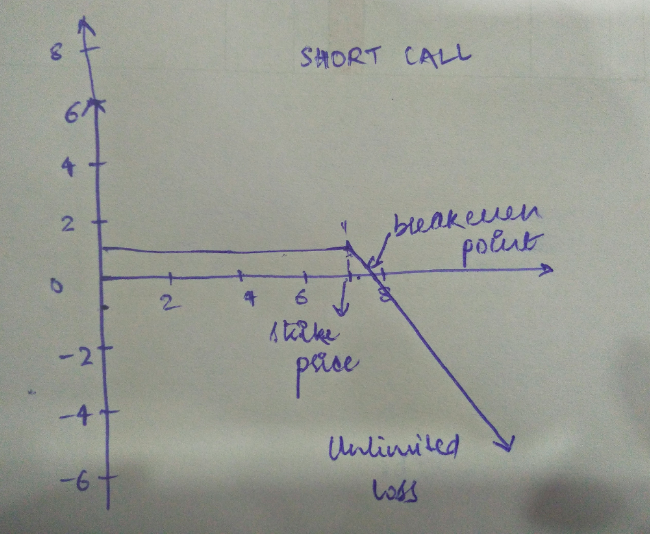 SHORT CALL
8
6
4
2
0
2
4
6
8
-2
-4
-6
breakeven
point
strike
price
Unlimited
loss